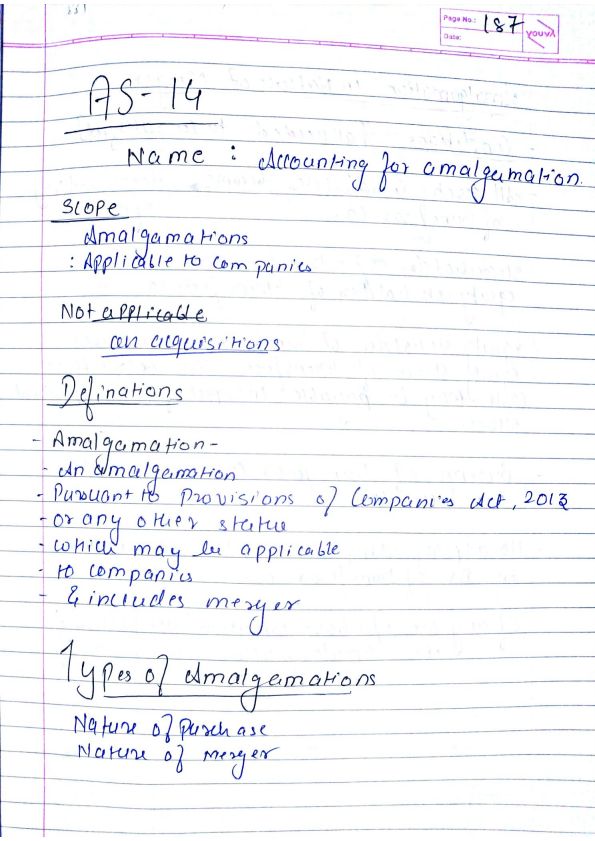 Page No.: 187
Date:
YOUVA
AS-14
Name : Accounting for amalgamation.
Scope
Amalgamations
: Applicable to companies
Not applicable
on acquisitions
Definations
- Amalgamation -
- An amalgamation
- Pursuant to provisions of Companies Act, 2013
- or any other statue
- which may be applicable
- to companies
- & includes merger
Types of Amalgamations
Nature of Purchase
Nature of merger